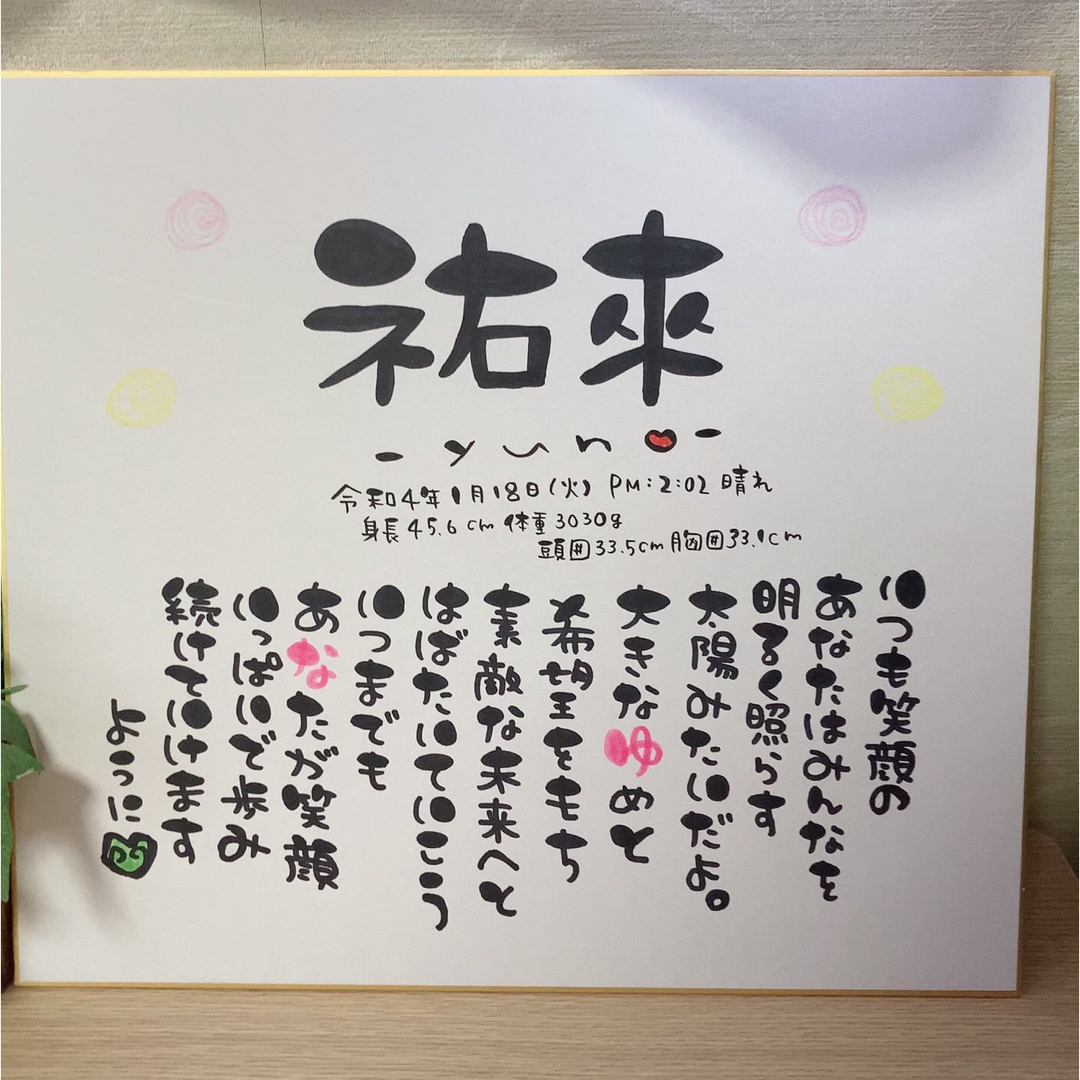 祐来
- yuna -
令和4年1月18日(火) PM:2:02 晴れ
身長45.6cm 体重3030g
頭囲33.5cm 胸囲33.1cm
いつも笑顔の
あなたはみんなを
明るく照らす
太陽みたいだよ。
大きなゆめと
希望をもち
素敵な未来へと
はばたいていこう
いつまでも
あなたが笑顔
いっぱいで歩み
続けていけます
ように